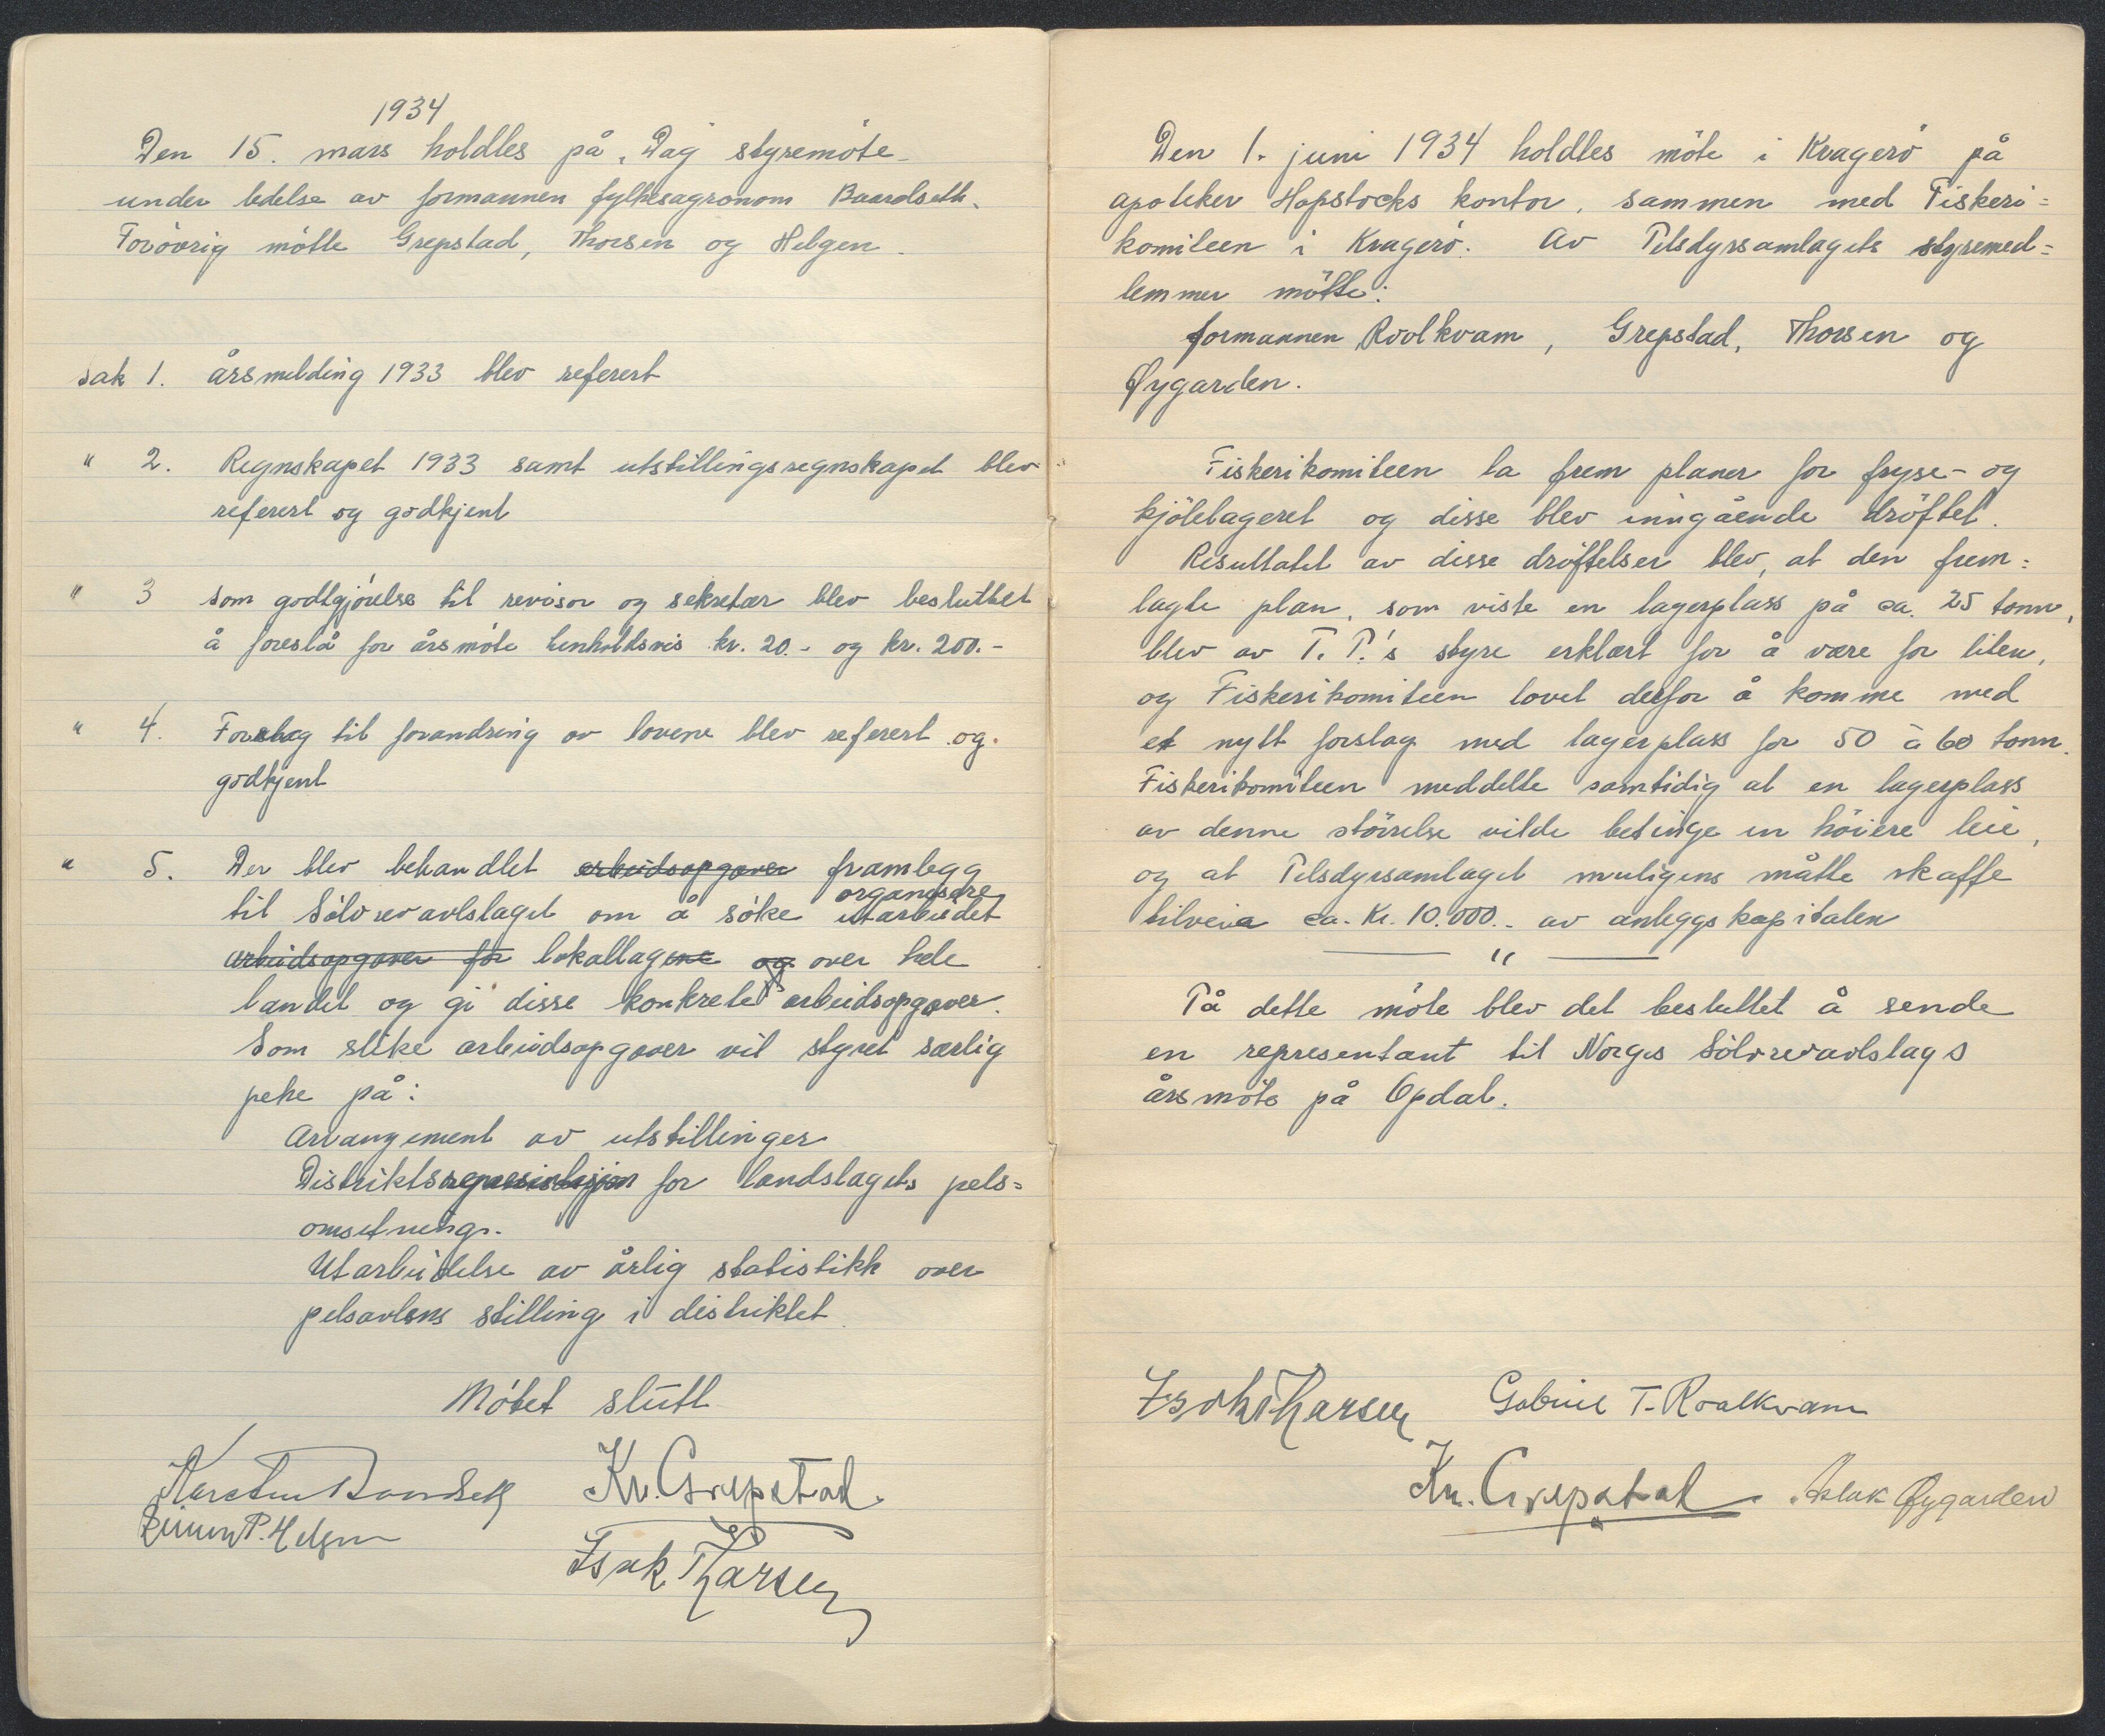 1934
Den 15. mars holdtes på "Dag styremöte
under ledelse av formannen fylkesagronom Baardseth.
Forövrig mötte Grepstad, Thorsen og Helgen.
sak 1. årsmelding 1933 blev referert
" 2. Regnskapet 1933 samt utstillingsregnskapet blev
referert og godkjent
" 3 som godtgjörelse til revisor og sekretær blev besluttet
å foreslå for årsmöte henholdsvis kr. 20.- og kr. 200.-
" 4. Forslag til forandring av lovene blev referert og
godkjent
" 5. Der blev behandlet arbeidsopgaver framlegg
organisere
til Sölvrevavlslaget om å söke utarbeidet
arbeidsopgaver for lokallagene og over hele
landet og gi disse konkrete arbeidsopgaver.
Som slike arbeidsopgaver vil styret særlig
peke på:
Arrangement av utstillinger
Distriktsrepresentasjon for landslagets pels=
omsetnings.
Utarbeidelse av årlig statistikk over
pelsavlens stilling i distriktet.
Mötet slutt
Karsten Baardseth Kr. Grepstad.
P. Helgen
Isak Thorsen
Den 1. juni 1934 holdtes möte i Kragerö på
apoteker Hopstocks kontor, sammen med Fiskeri=
komiteen i Kragerö. Av Pelsdyrsamlagets styremed=
lemmer mötte:
formannen Roalkvam, Grepstad, Thorsen og
Øygarden.
Fiskerikomiteen la frem planer for fryse- og
kjölelageret og disse blev inngående dröftet.
Resultatet av disse dröftelser blev, at den frem=
lagte plan, som viste en lagerplass på ca. 25 tonn,
blev av T. P.'s styre erklært for å være for liten,
og Fiskerikomiteen lovet derfor å komme med
et nytt forslag med lagerplass for 50 à 60 tonn.
Fiskerikomiteen meddelte samtidig at en lagerplass
av denne störrelse vilde betinge en höiere leie,
og at Pelsdyrsamlaget muligens måtte skaffe
tilveie ca. Kr. 10.000.- av anleggskapitalen
"
På dette möte blev det besluttet å sende
en representant til Norges Sölvrevavlslags
årsmöte på Opdal.
Isak Thorsen Gabriel T. Roalkvam
Kr. Grepstad. Aslak Øygarden